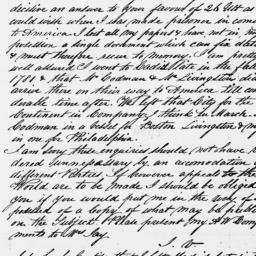 decisive an answer to your favour of 26 Oct as
could wish when I was made prisoner in comi
to America I lost all my papers & have not in m
possession a single document which can fix dates
& must therefore recur to memory. I am perfe
well assured I went to
1781 & that Mr Codman & Mr Livingston did
arrive there on their way to America till con
derable time after. We left that City for the
Continent in Company, I think in March.
Codman in a vessel for Boston Livingston & m
in one for Philadelphia.
I am sorry these enquiries should not have b
dered unnecessary by an accomodation
different Parties. If however appeals to the
World are to be made I should be obliged
you if you would put me in the way of
possessed of a copy of what may be publis
on the Subject. Please present my & W Com
ments to Mrs Jay.
J. W